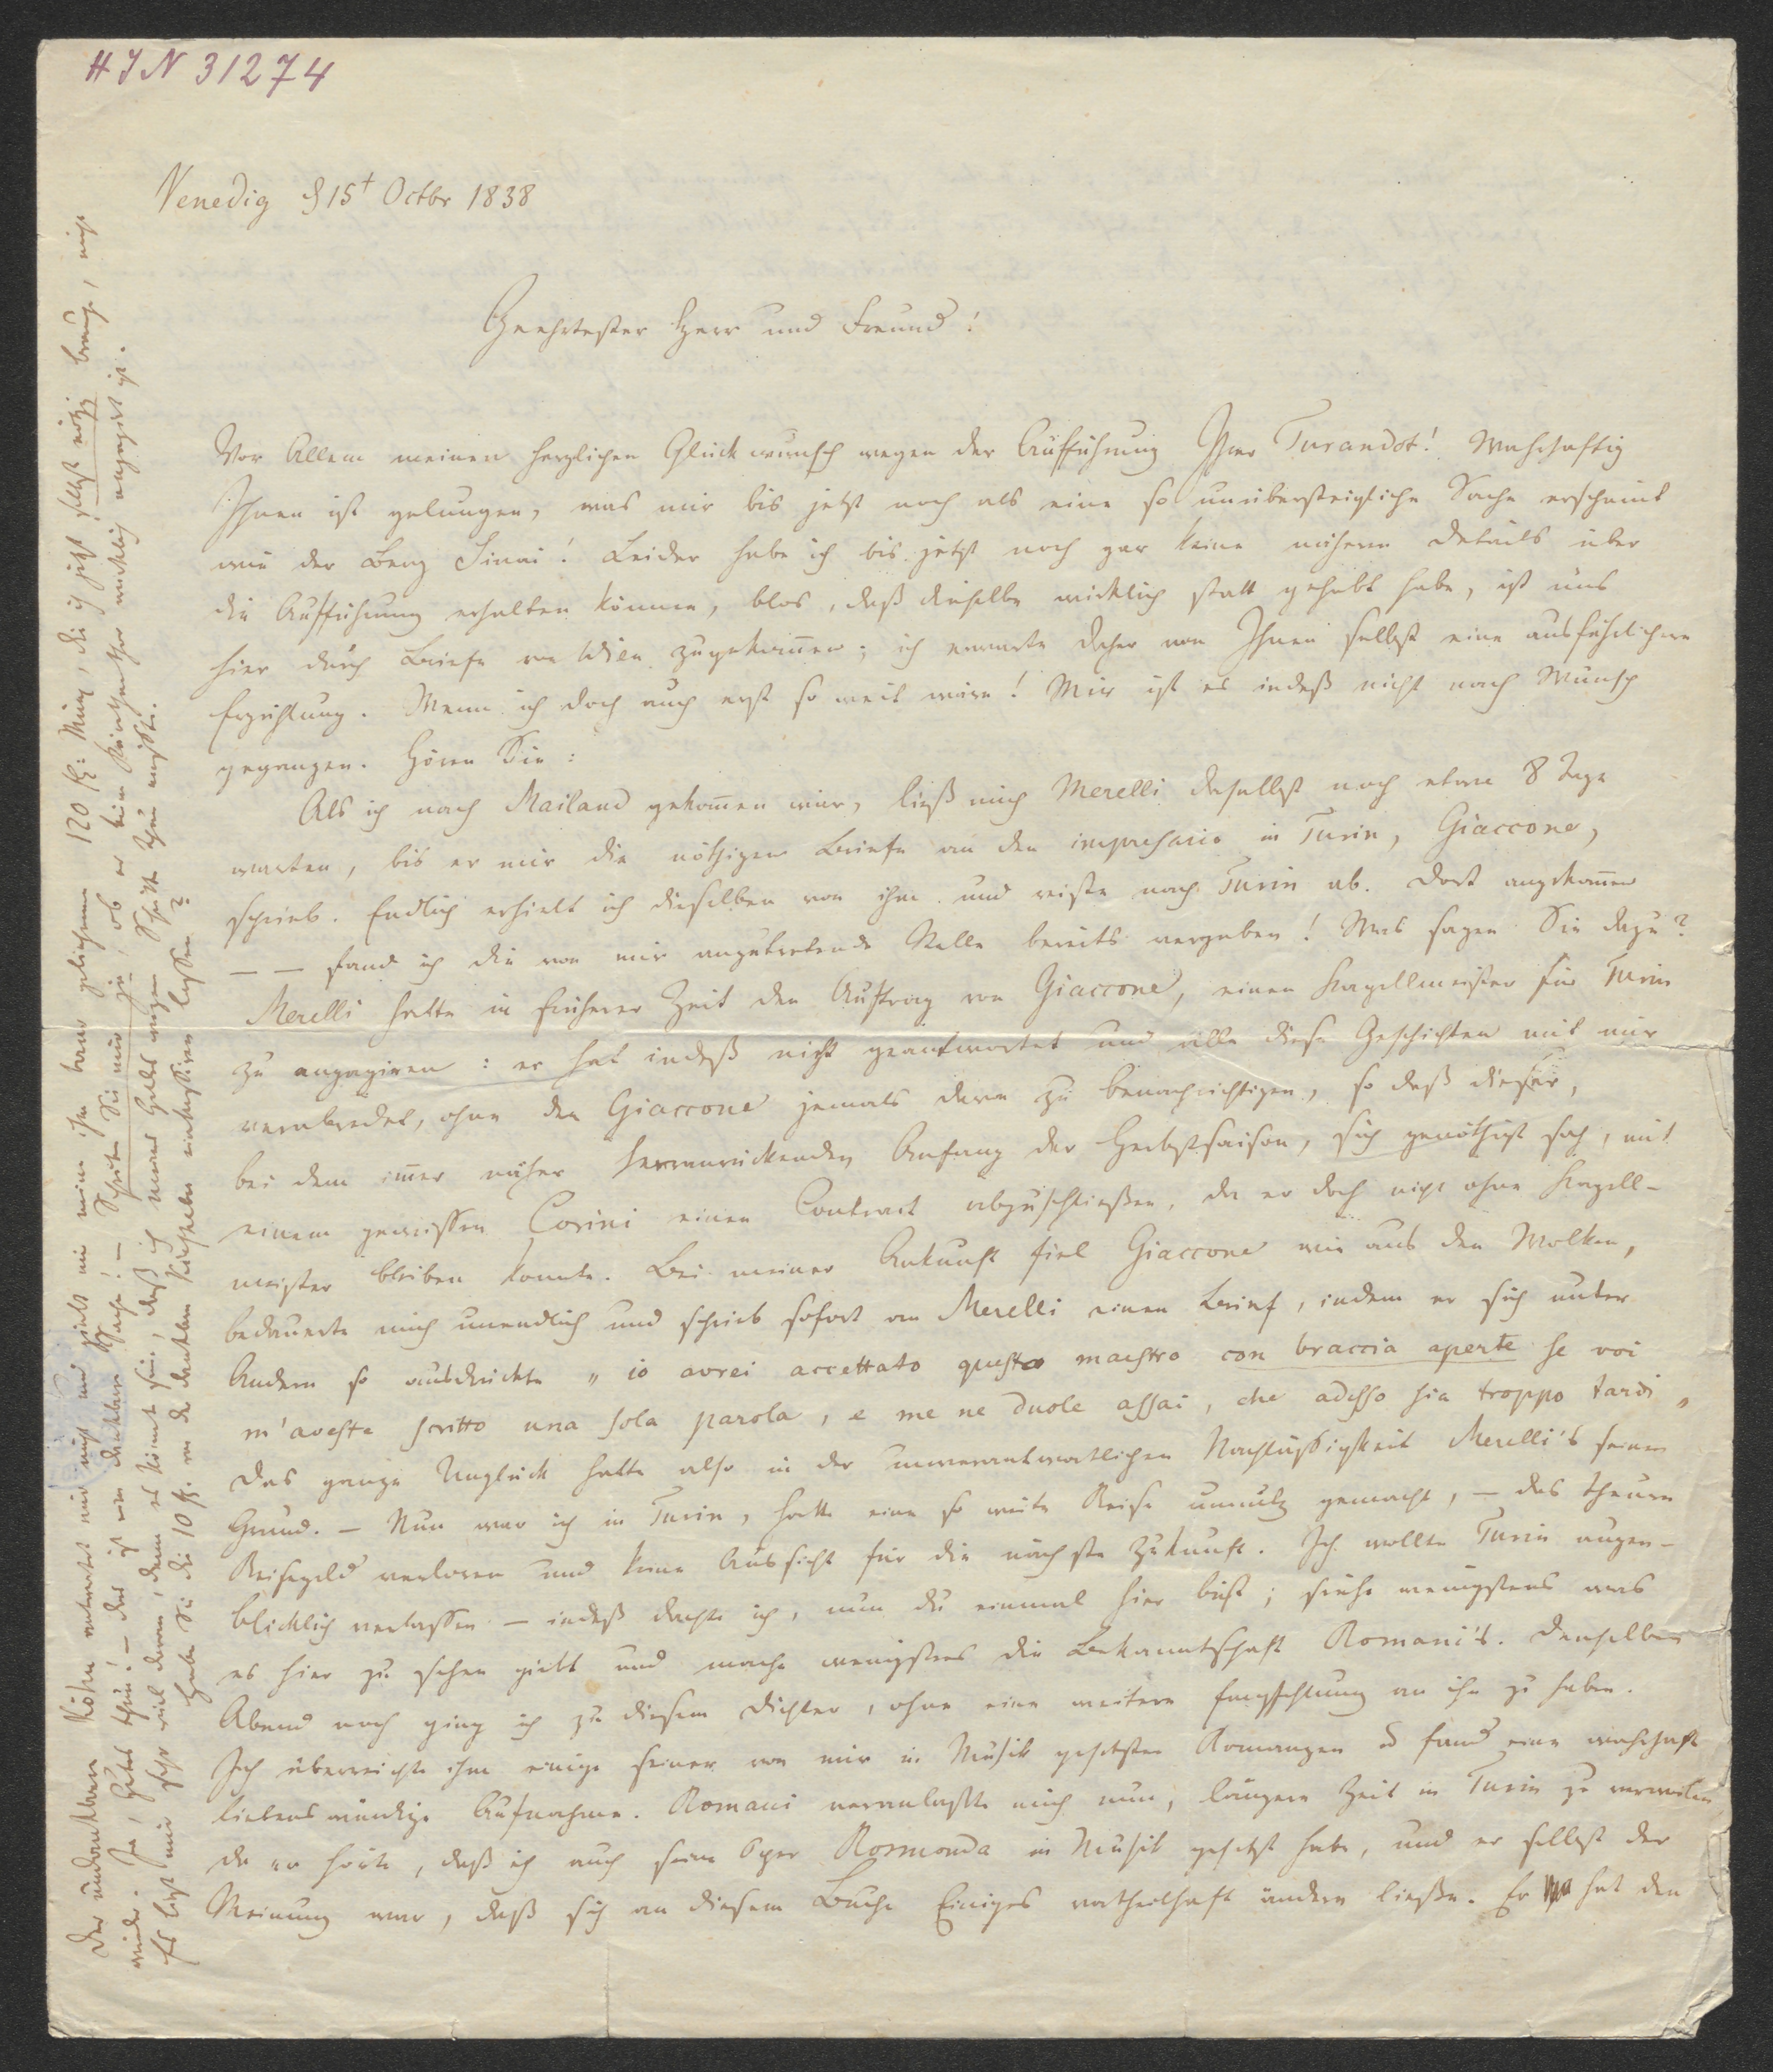 HIN 31274
Venedig d 15t Octbr 1838
Geehrtester Herr und Freund!
Vor Allem meinen herzlichen Glückwunsch wegen der Aufführung Ihrer Turandot! Wahrhaftig
Ihnen ist gelungen, was mir bis jetzt noch als eine so unübersteigliche Sache erscheint
wie der Berg Sinai! Leider habe ich bis jetzt noch gar keine näheren Details über
die Aufführung erhalten können, blos, daß dieselbe wirklich statt gehabt habe, ist uns
hier durch Briefe von Wien zugekom̅en; ich erwarte daher von Ihnen selbst eine ausführlichere
Erzählung. Wenn ich doch auch erst so weit wäre! Mir ist es indeß nicht nach Wunsch
gegangen. Hören Sie:
Als ich nach Mailand gekom̅en war, ließ mich Merelli daselbst noch etwa 8 Tage
warten, bis er mir die nöthigen Briefe an den impresario in Turin, Giaccone,
schrieb. Endlich erhielt ich dieselben von ihm und reiste nach Turin ab. Dort angekom̅en
— — fand ich die von mir anzutretende Stelle bereits vergeben! Was sagen Sie dazu?
Merelli hatte in früherer Zeit den Auftrag von Giaccone, einen Kapellmeister für Turin
zu engagiren: er hat indeß nicht geantwortet und alle diese Geschichten mit mir
verabredet, ohne den Giaccone jemals davon zu benachrichtigen, so daß dieser,
bei dem im̅er näher heranrückenden Anfang der Herbstsaison, sich genöthigt sah, mit
einem gewissen Corini einen Contract abzuschließen, da er doch nicht ohne Kapell-
meister bleiben konnte. Bei meiner Ankunft fiel Giaccone wie aus den Wolken,
bedauerte mich unendlich und schrieb sofort an Merelli einen Brief, indem er sich unter
Andern so ausdrückte „ io avrei accettato questo maestro con braccia aperte se voi
m'aveste scritto una sola parola, e me ne duole assai, che adesso sia troppo tardi „
Das ganze Unglück hatte also in der unverantwortlichen Nachlässigkeit Merelli's seinen
Grund. — Nun war ich in Turin, hatte eine so weite Reise unnütz gemacht, — das theure
Reisegeld verloren und keine Aussicht für die nächste Zukunft. Ich wollte Turin augen-
blicklich verlassen — indeß dachte ich, nun du einmal hier bist; siehe wenigstens was
es hier zu sehen giebt und mache wenigstens die Bekanntschaft Romani's. Denselben
Abend noch ging ich zu diesem Dichter, ohne eine weitere Empfehlung an ihn zu haben.
Ich überreichte ihm einige seiner von mir in Musik gesetzten Romanzen u fand eine wahrhaft
liebenswürdige Aufnahme. Romani veranlaßte mich nun, längere Zeit in Turin zu verweilen
da er hörte, daß ich auch seine Oper Rosmonda in Musik gesetzt habe, und er selbst der
Meinung war, daß sich an diesem Buche Einiges vortheilhaft ändern ließe. Er hat den
Der undankbare Köhn antwortet mir nicht und giebt mir meine ihm baar geliehenen 120 fl: Münz, die ich jetzt selbst nöthig brauche, nicht
wieder. Ja, Gutes thun! — das ist eine dankbare Sache! — Sehen Sie mir zu, ob er beim Kärnthnerthor wirklich engagirt ist.
Es liegt mir sehr viel daran, denn es könnte sein, daß ich meines Geldes wegen Schritte thun müßte.
Haben Sie die 10 fl. von der dankbaren Küchhelbe einkassiren lassen?